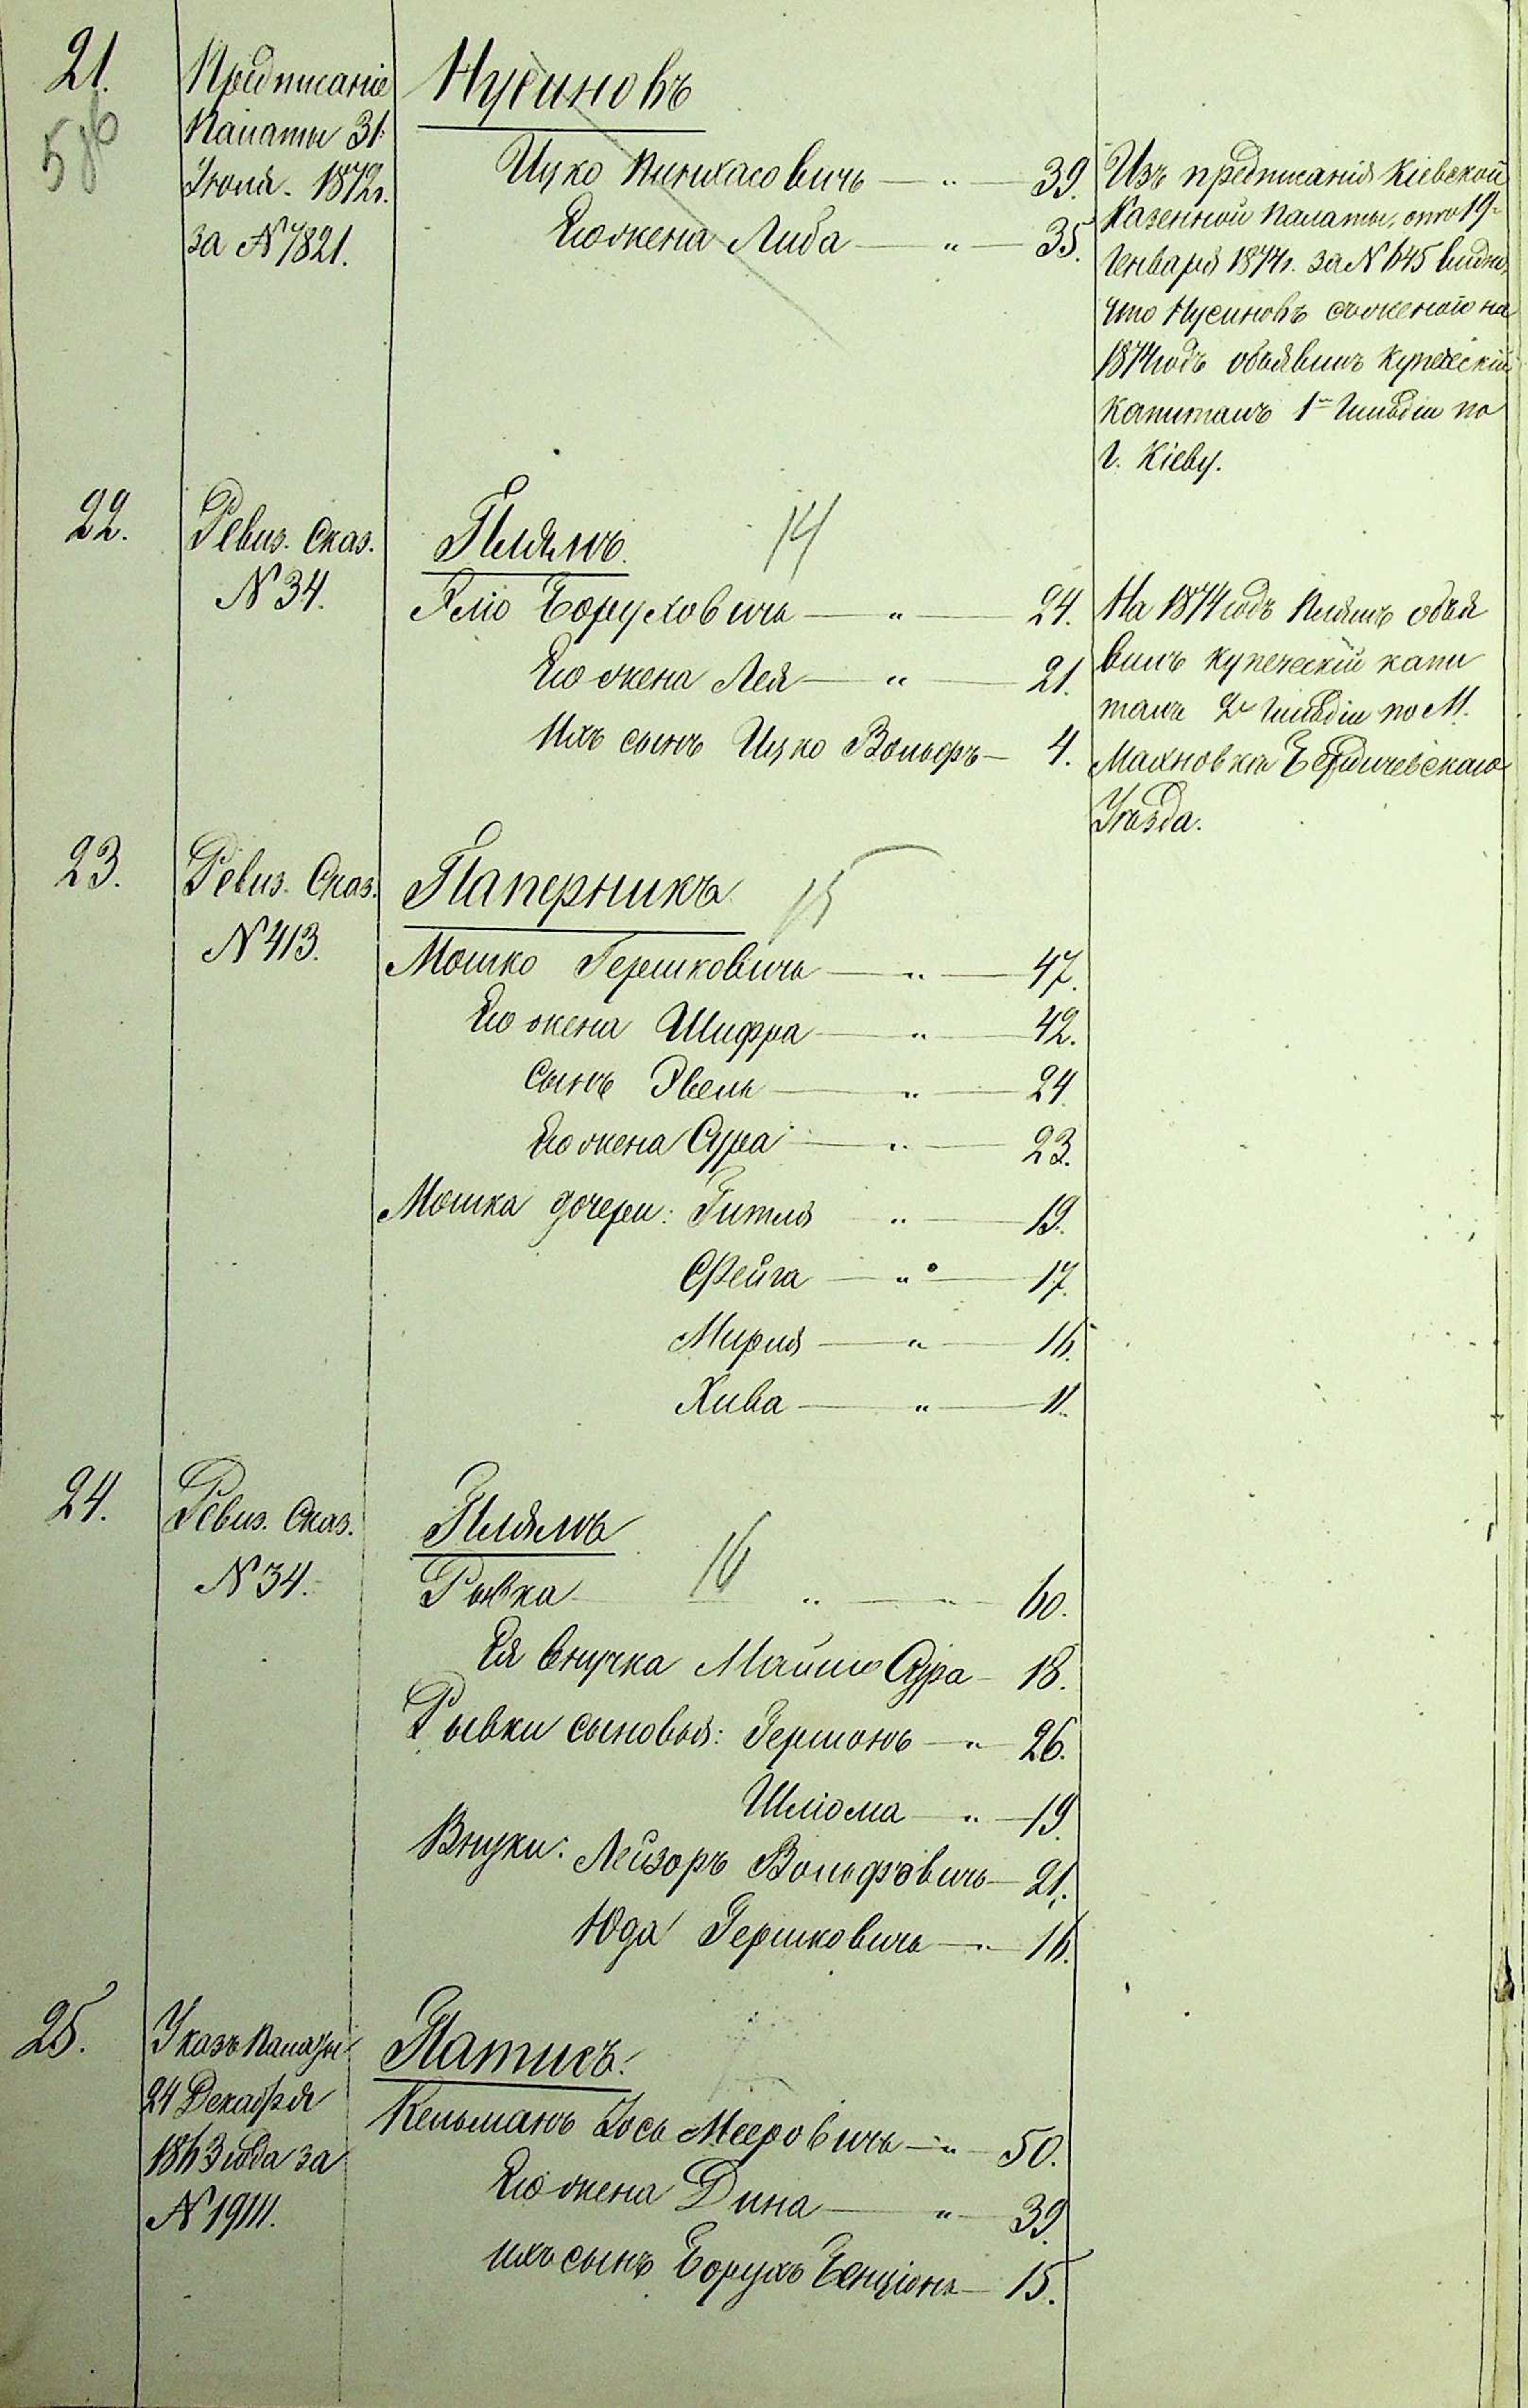 21.
586
Предписаніе
Палаты 31
Іюля. 1872г.
за N 7821.
Нусиновъ
Ицко Пинхасовичь — „ — 39.
Его жена Либа — „ — 35.
Изъ предписанія Кіевской
Казенной Палаты, отъ 19
Генваря 1874г. за N 645 видно,
что Нусиновъ съ женою на
1874 годъ объявилъ купеческій
капиталъ 1й гильдіи по
г. Кіеву.
22.
Ревиз. Сказ.
N 34.
Плямъ. 14
Эліо Боруховичь — „ — 24.
Его жена Лея — „ — 21.
Ихъ сынъ Ицко Вольфъ — 4.
На 1874 годъ Плямъ объя
вилъ купеческій капи
талъ 2й гильдіи по М.
Махновкѣ Бердичевскаго
Уѣзда.
23.
Ревиз. Сказ.
N 413.
Паперникъ 15
Мошко Гершковичь — „ — 47.
Его жена Шифра — „ — 42.
Сынъ Эвель — „ — 24.
Его жена Сура — „ — 23.
Мошка дочери: Гитля „ — 19.
Фейга — „ — 17.
Мирля — „ — 16.
Хива — „ — 11.
24.
Ревиз. Сказ.
N 34.
Плямъ 16
Рывка — „ — 60.
Ея внучка Сура — 18.
Рывки сыновья: Гершонъ — „ — 26.
Шліома — „ — 19.
Внуки: Лейзоръ Вольфовичь — 21.
Юда Гершковичь — „ — 16.
25.
Указъ Палаты
24 Декабря
1863 года за
N 19111.
Патисъ.
Кельманъ Іось Мееровичь — „ — 50.
Его жена Дина — „ — 39.
ихъ сынъ Борухъ Бенціонъ — 15.